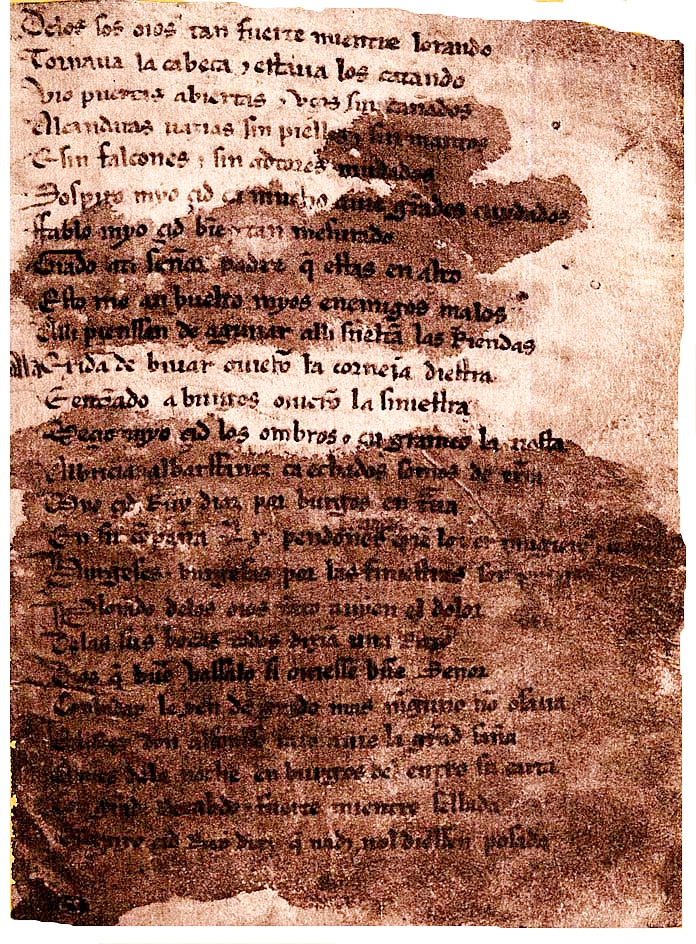 Delos sos oios tan fuerte mientre lorando
Tornaua la cabeça ⁊ estaua los catando
Vio puertas abiertas ⁊ vços sin cañados
Alcandaras uazias sin pielles ⁊ sin mantos
E sin falcones ⁊ sin adtores mudados
Sospiro myo çid ca mucho auie grãdes cuydados
Fablo myo çid bie⁊ ⁊ tan mesurado
Grado ati señor padre q̃ estas en alto
Esto me an buelto myos enemigos malos
Alli pienssan de aguiiar alli sueltã las Riendas
Ala exida de biuar ouierõ la corneia diestra
E entrãdo a burgos ouierõ la siniestra
Meçio myo çid los ombros ⁊ en grameo la tiesta
Albricia albarffanez ca echados somos de tr̃ra
Myo çid Ruy diaz por burgos en traua
En su cõpaña Lx. pendones
Burgeses ⁊ burgesas por las finiestras son
Plorando delos oios tanto auyen el dolor
Delas sus bocas todos dizian una Razon
Dios q̃ buẽ vassalo si ouiesse buẽ Señor
Conbidar le yen de grado mas niguno nõ osaua
El Rey don alfonsso tanto auie la grãd saña
Antes dela noche en burgos del entro su carta
Con grãd Recabdo ⁊ fuerte mientre sellada
çid Ruy diaz q̃ nadi nol diessen posada